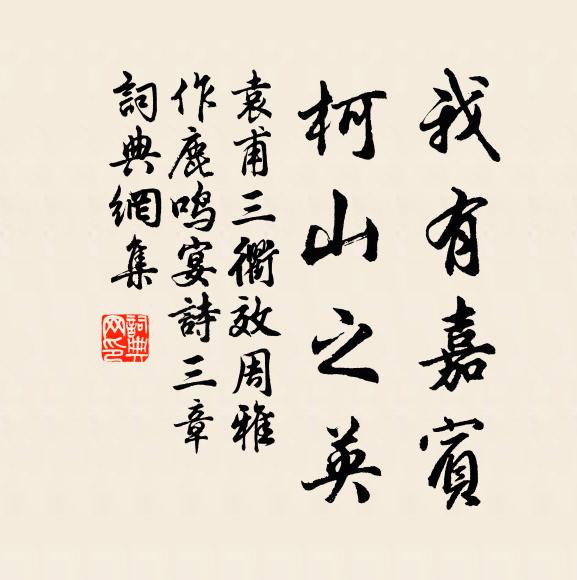 我有嘉賓
柯山之英
袁甫三衢效周雅
作鹿鳴宴詩三章
詞典網集
詞典網印